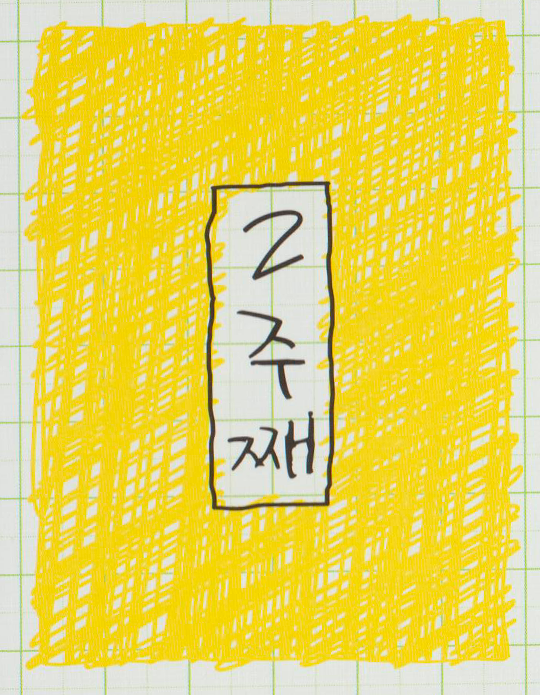 2
주
째